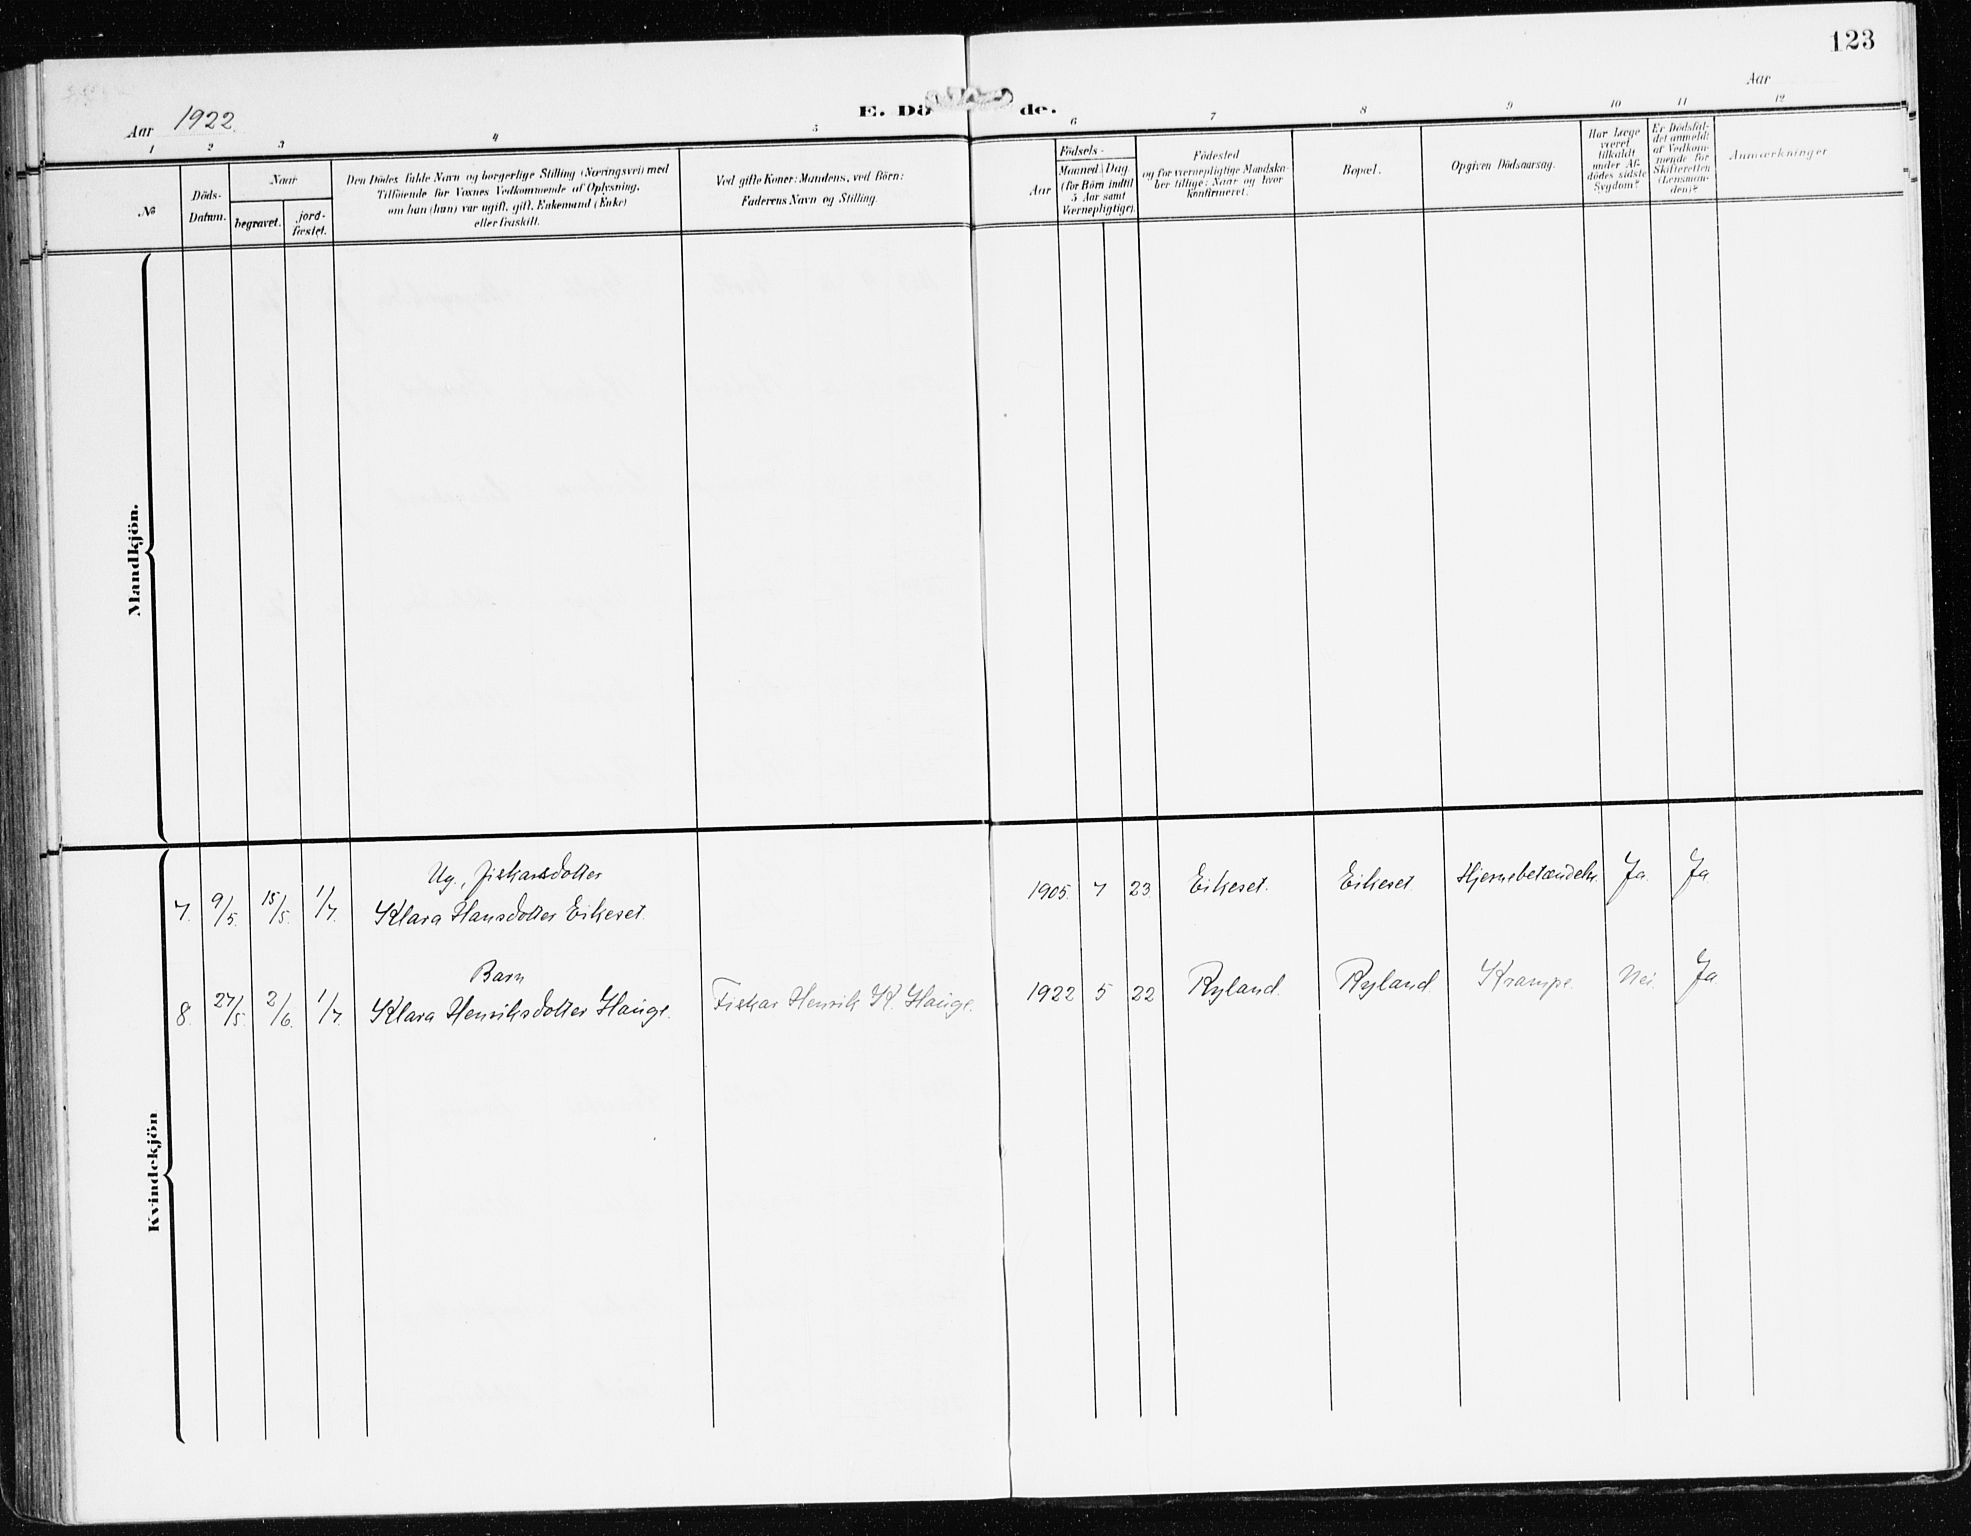 123
Aar 1922.
E. Dö de.
Aar
1 2 3 4 5 6 7 8 9 10 11 12
No
Döds-
Datum.
Naar
begravet.
jord-
fæstet.
Den Dödes fulde Navn og borgerlige Stilling (Næringsvei) med
Tilföiende for Voxnes Vedkommende af Oplysning,
om han (hun) var ugift, gift, Enkemand (Enke)
eller fraskilt.
Ved gifte Koner: Mandens, ved Börn:
Faderens Navn og Stilling.
Födsels-
Aar
Maaned Dag
(for Börn indtil
5 Aar samt
Værnepligtige).
Födested
og for værnepligtige Mandska-
ber tillige: Naar og hvor
konfirmeret.
Bopæl.
Opgiven Dödsaarsag.
Har Læge
været
tilkaldt
under Af-
dödes sidste
Sygdom?
Er Dödsfal-
det anmeldt
af Vedkom-
mende for
Skifteretten
(Lensman-
den)?
Anmærkninger
Mandkjön.
Kvindekjön
Ug., fiskarsdotter
7. 9/5. 15/5. 1/7. Klara Hansdotter Eikeset. 1905. 7 23. Eikeset. Eikeset Hjernebetændelse. Ja. Ja
Barn
8. 27/5. 2/6. 1/7. Klara Henriksdotter Hauge. Fiskar Henrik K. Hauge. 1922 5 22 Ryland. Ryland Krampe. Nei. Ja